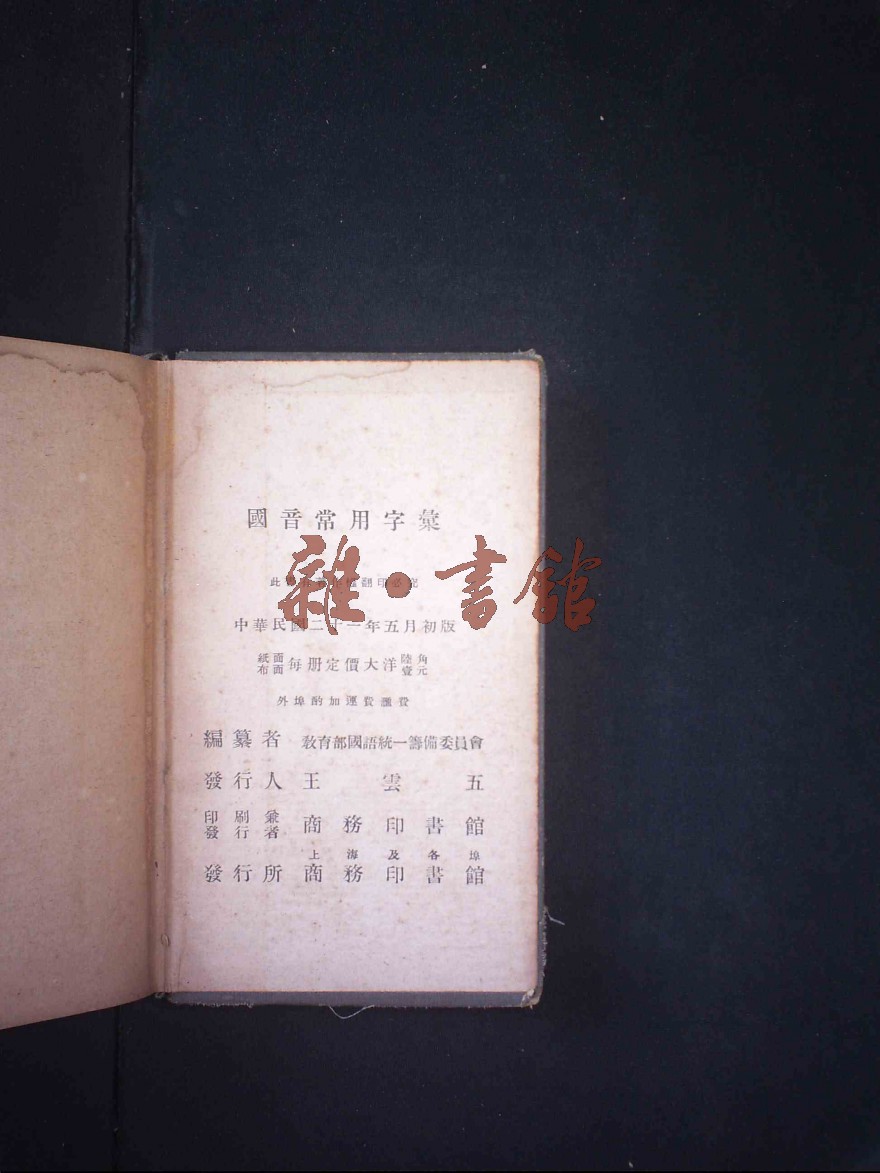 國音常用字彙
此書有著作權翻印必究
中華民國二十一年五月初版
紙面布面每册定價大洋陸角壹元
外埠酌加運費匯費
編纂者 教育部國語統一籌備委員會
發行人 王雲五
印刷兼發行者 商務印書館
上海及各埠
發行所 商務印書館
雜·書館